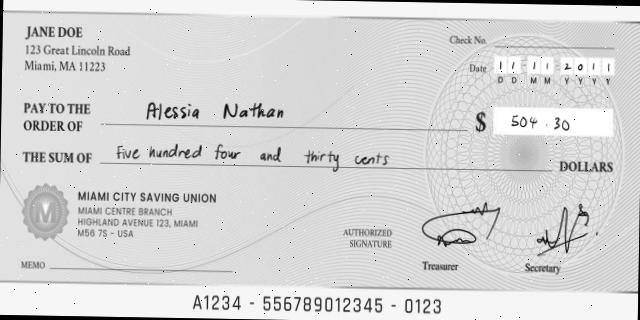 JANE DOE
123 Great Lincoln Road
Miami, MA 11223
Check No.
Date 11 11 2011
D D M M Y Y Y Y
PAY TO THE
ORDER OF Alessia Nathan
$ 504.30
THE SUM OF five hundred four and thirty cents DOLLARS
M
MIAMI CITY SAVING UNION
MIAMI CENTRE BRANCH
HIGHLAND AVENUE 123, MIAMI
M56 7S - USA
AUTHORIZED
SIGNATURE
Treasurer
Secretary
MEMO
A1234 - 556789012345 - 0123